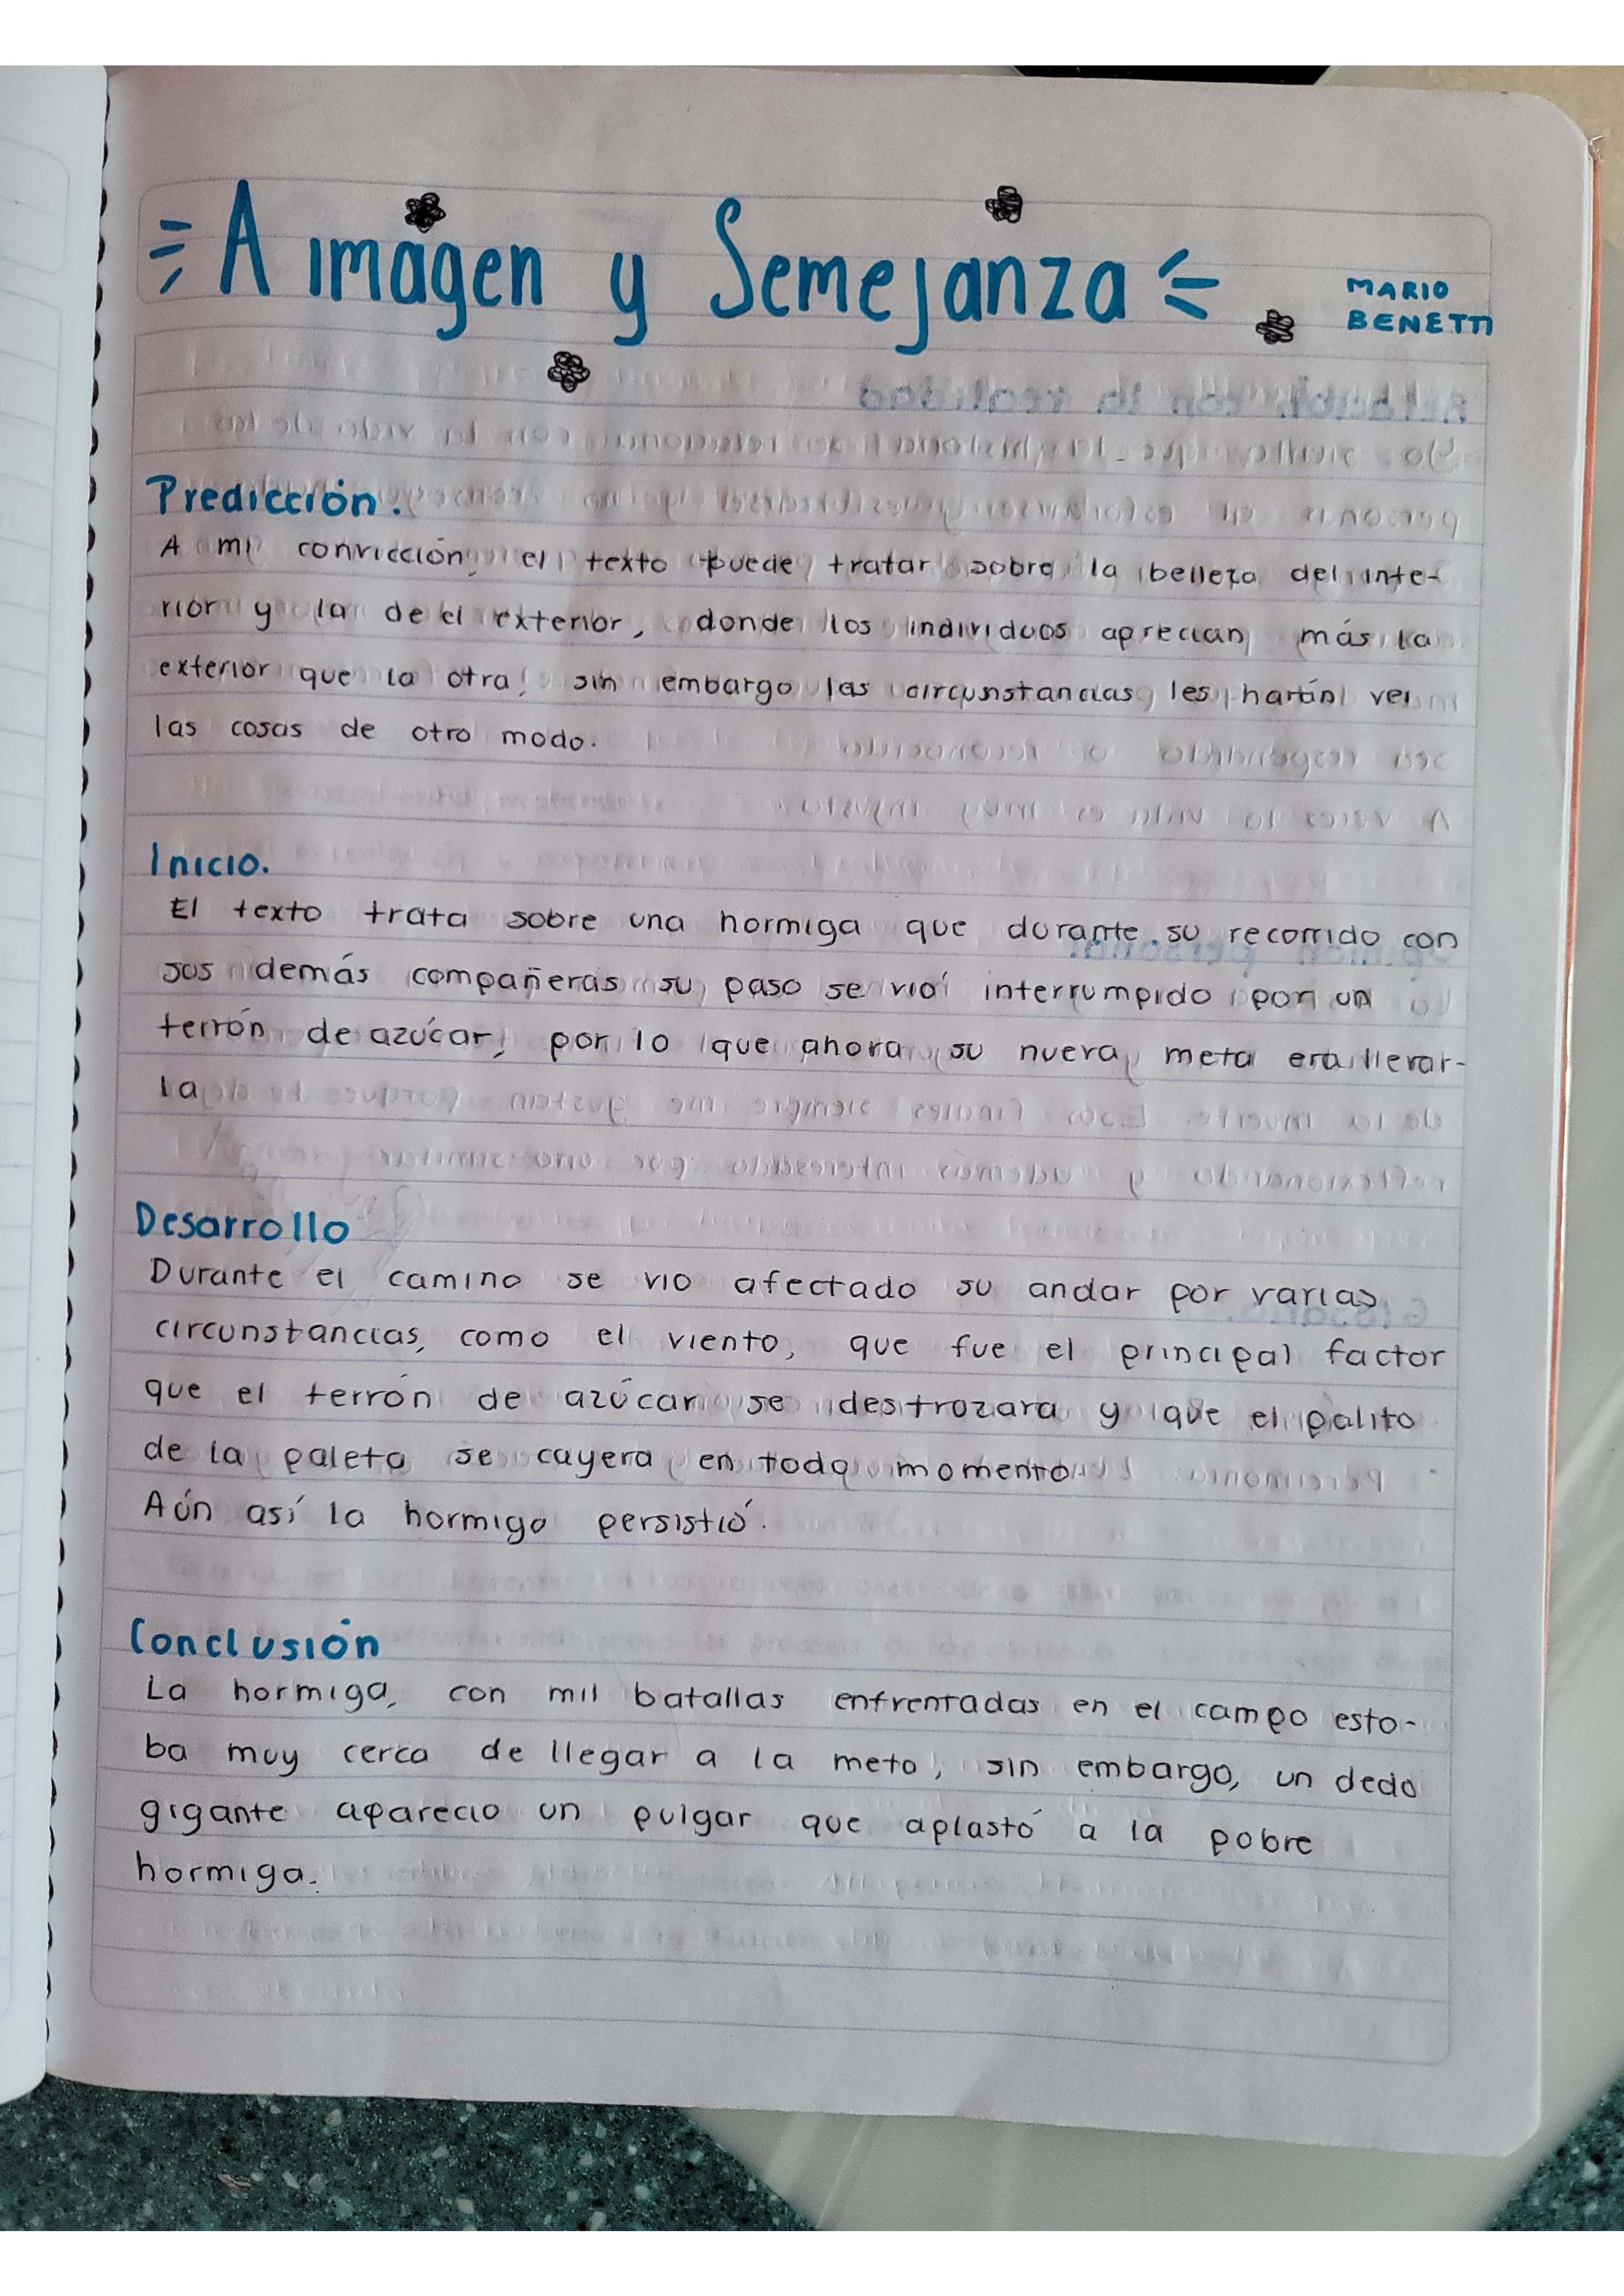 A imagen y Semejanza
MARIO
BENETTI
Predicción.
A mi convicción, el texto puede tratar sobre la belleza del inte-
rior y la de el exterior, donde los individuos aprecian más la
exterior que la otra, sin embargo las circunstancias les harían ver
las cosas de otro modo.
Inicio.
El texto trata sobre una hormiga que durante su recorrido con
sus demás compañeras su paso se vió interrumpido por un
terrón de azúcar, por lo que ahora su nueva meta era llevar-
la
Desarrollo
Durante el camino se vio afectado su andar por varias
circunstancias, como el viento, que fue el principal factor
que el terrón de azúcar se destrozara y que el palito
de la paleta se cayera en todo momento
Aún así la hormiga persistió.
Conclusión
La hormiga, con mil batallas enfrentadas en el campo esta-
ba muy cerca de llegar a la meta, sin embargo, un dedo
gigante aparecio un pulgar que aplastó a la pobre
hormiga.